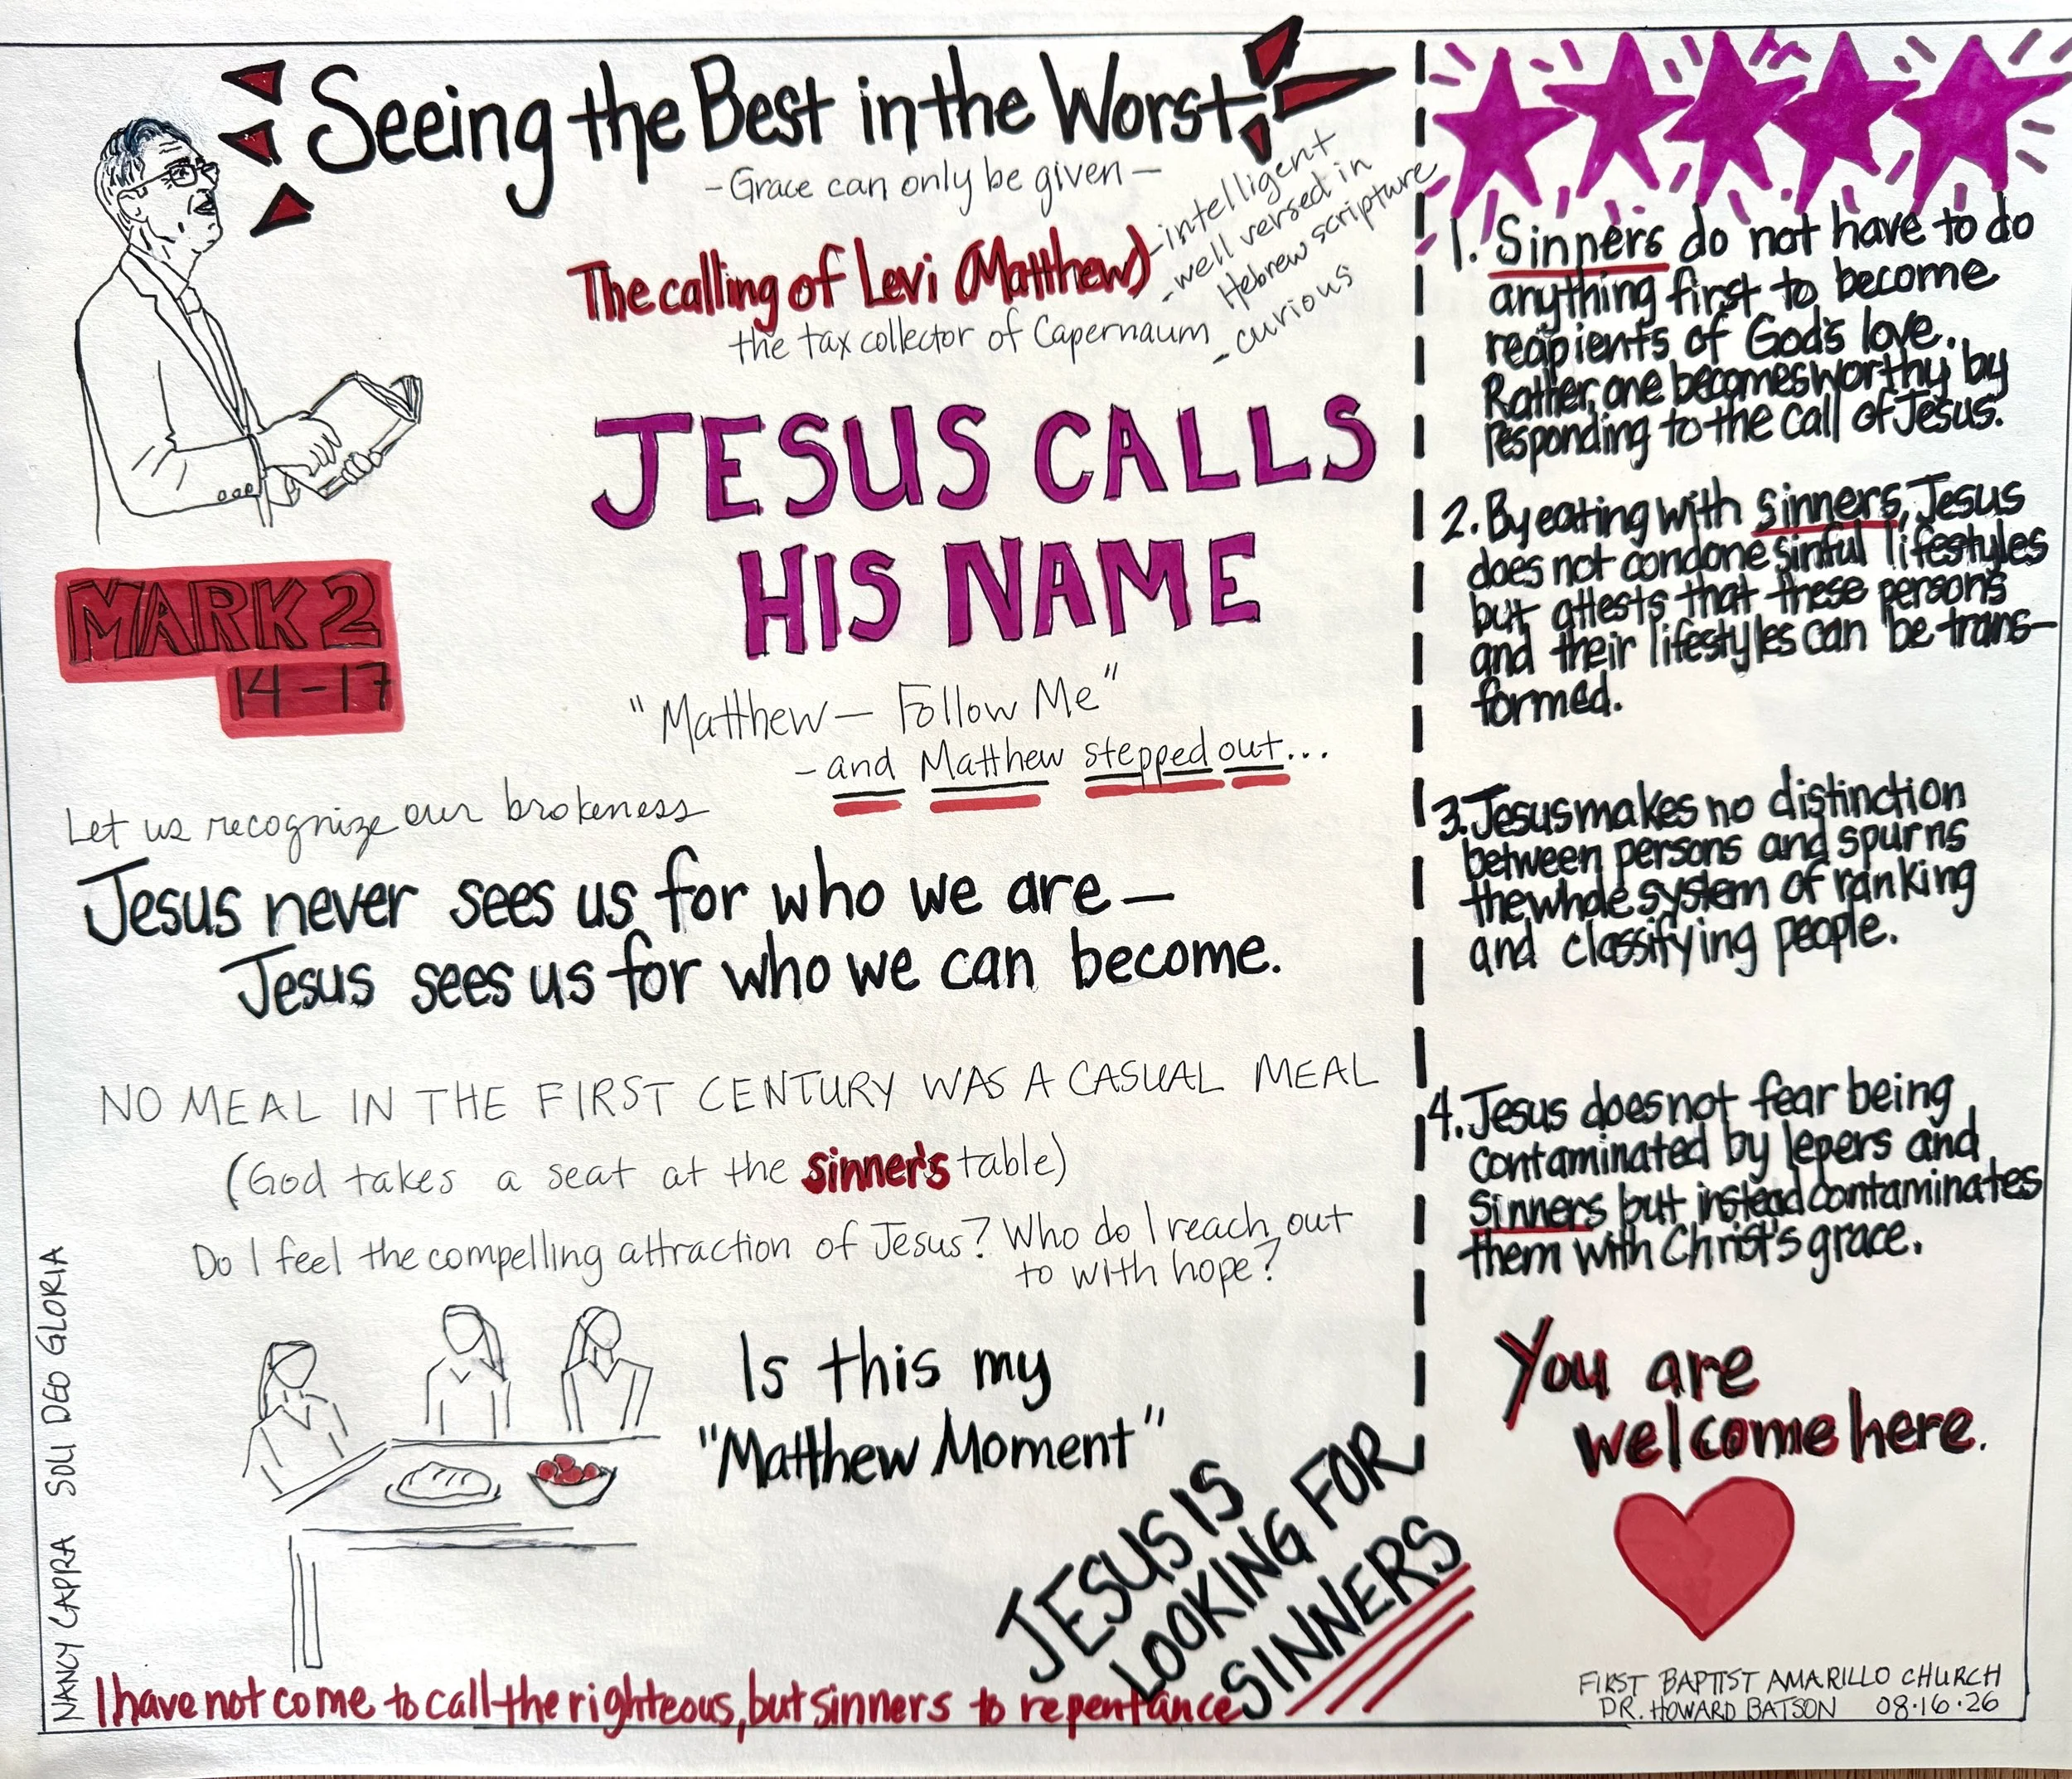 Seeing the Best in the Worst
- Grace can only be given -
The calling of Levi (Matthew)
the tax collector of Capernaum
- intelligent
- well versed in
Hebrew scripture
- curious
JESUS CALLS
HIS NAME
MARK 2
14-17
"Matthew - Follow Me"
- and Matthew stepped out...
Let us recognize our brokeness
Jesus never sees us for who we are -
Jesus sees us for who we can become.
NO MEAL IN THE FIRST CENTURY WAS A CASUAL MEAL
(God takes a seat at the sinner's table)
Do I feel the compelling attraction of Jesus? Who do I reach out
to with hope?
Is this my
"Matthew Moment"
JESUS IS
LOOKING FOR
SINNERS
I have not come to call the righteous, but sinners to repentance
NANCY CAPRA SOLI DEO GLORIA
1. Sinners do not have to do
anything first to become
recipients of God's love.
Rather, one becomes worthy by
responding to the call of Jesus.
2. By eating with sinners, Jesus
does not condone sinful lifestyles
but attests that these persons
and their lifestyles can be trans-
formed.
3. Jesus makes no distinction
between persons and spurns
the whole system of ranking
and classifying people.
4. Jesus does not fear being
contaminated by lepers and
sinners but instead contaminates
them with Christ's grace.
You are
welcome here.
FIRST BAPTIST AMARILLO CHURCH
DR. HOWARD BATSON 08·16·26